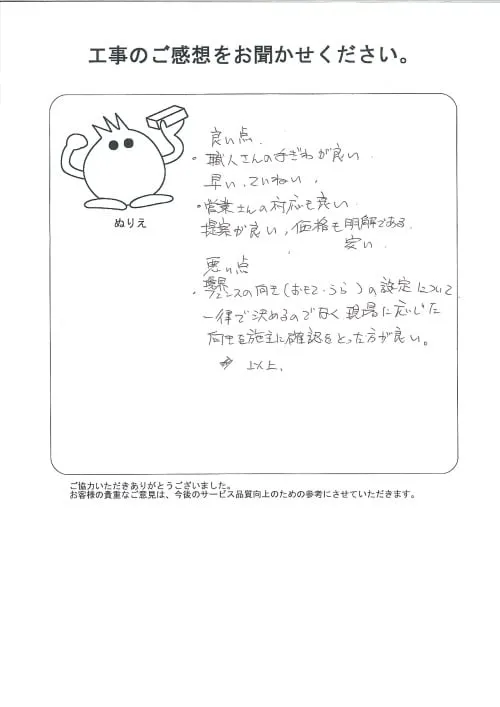 工事のご感想をお聞かせください。
ぬりえ
良い点
・職人さんの手ぎわが良い
早い、ていねい、
・営業さんの対応も良い
提案が良い、価格も明解である
安い
悪い点
境界
・フェンスの向き(おもて・うら)の設定について
一律で決めるので無く現場に応じた
向きを施主に確認をとった方が良い。
以上、
ご協力いただきありがとうございました。
お客様の貴重なご意見は、今後のサービス品質向上のための参考にさせていただきます。